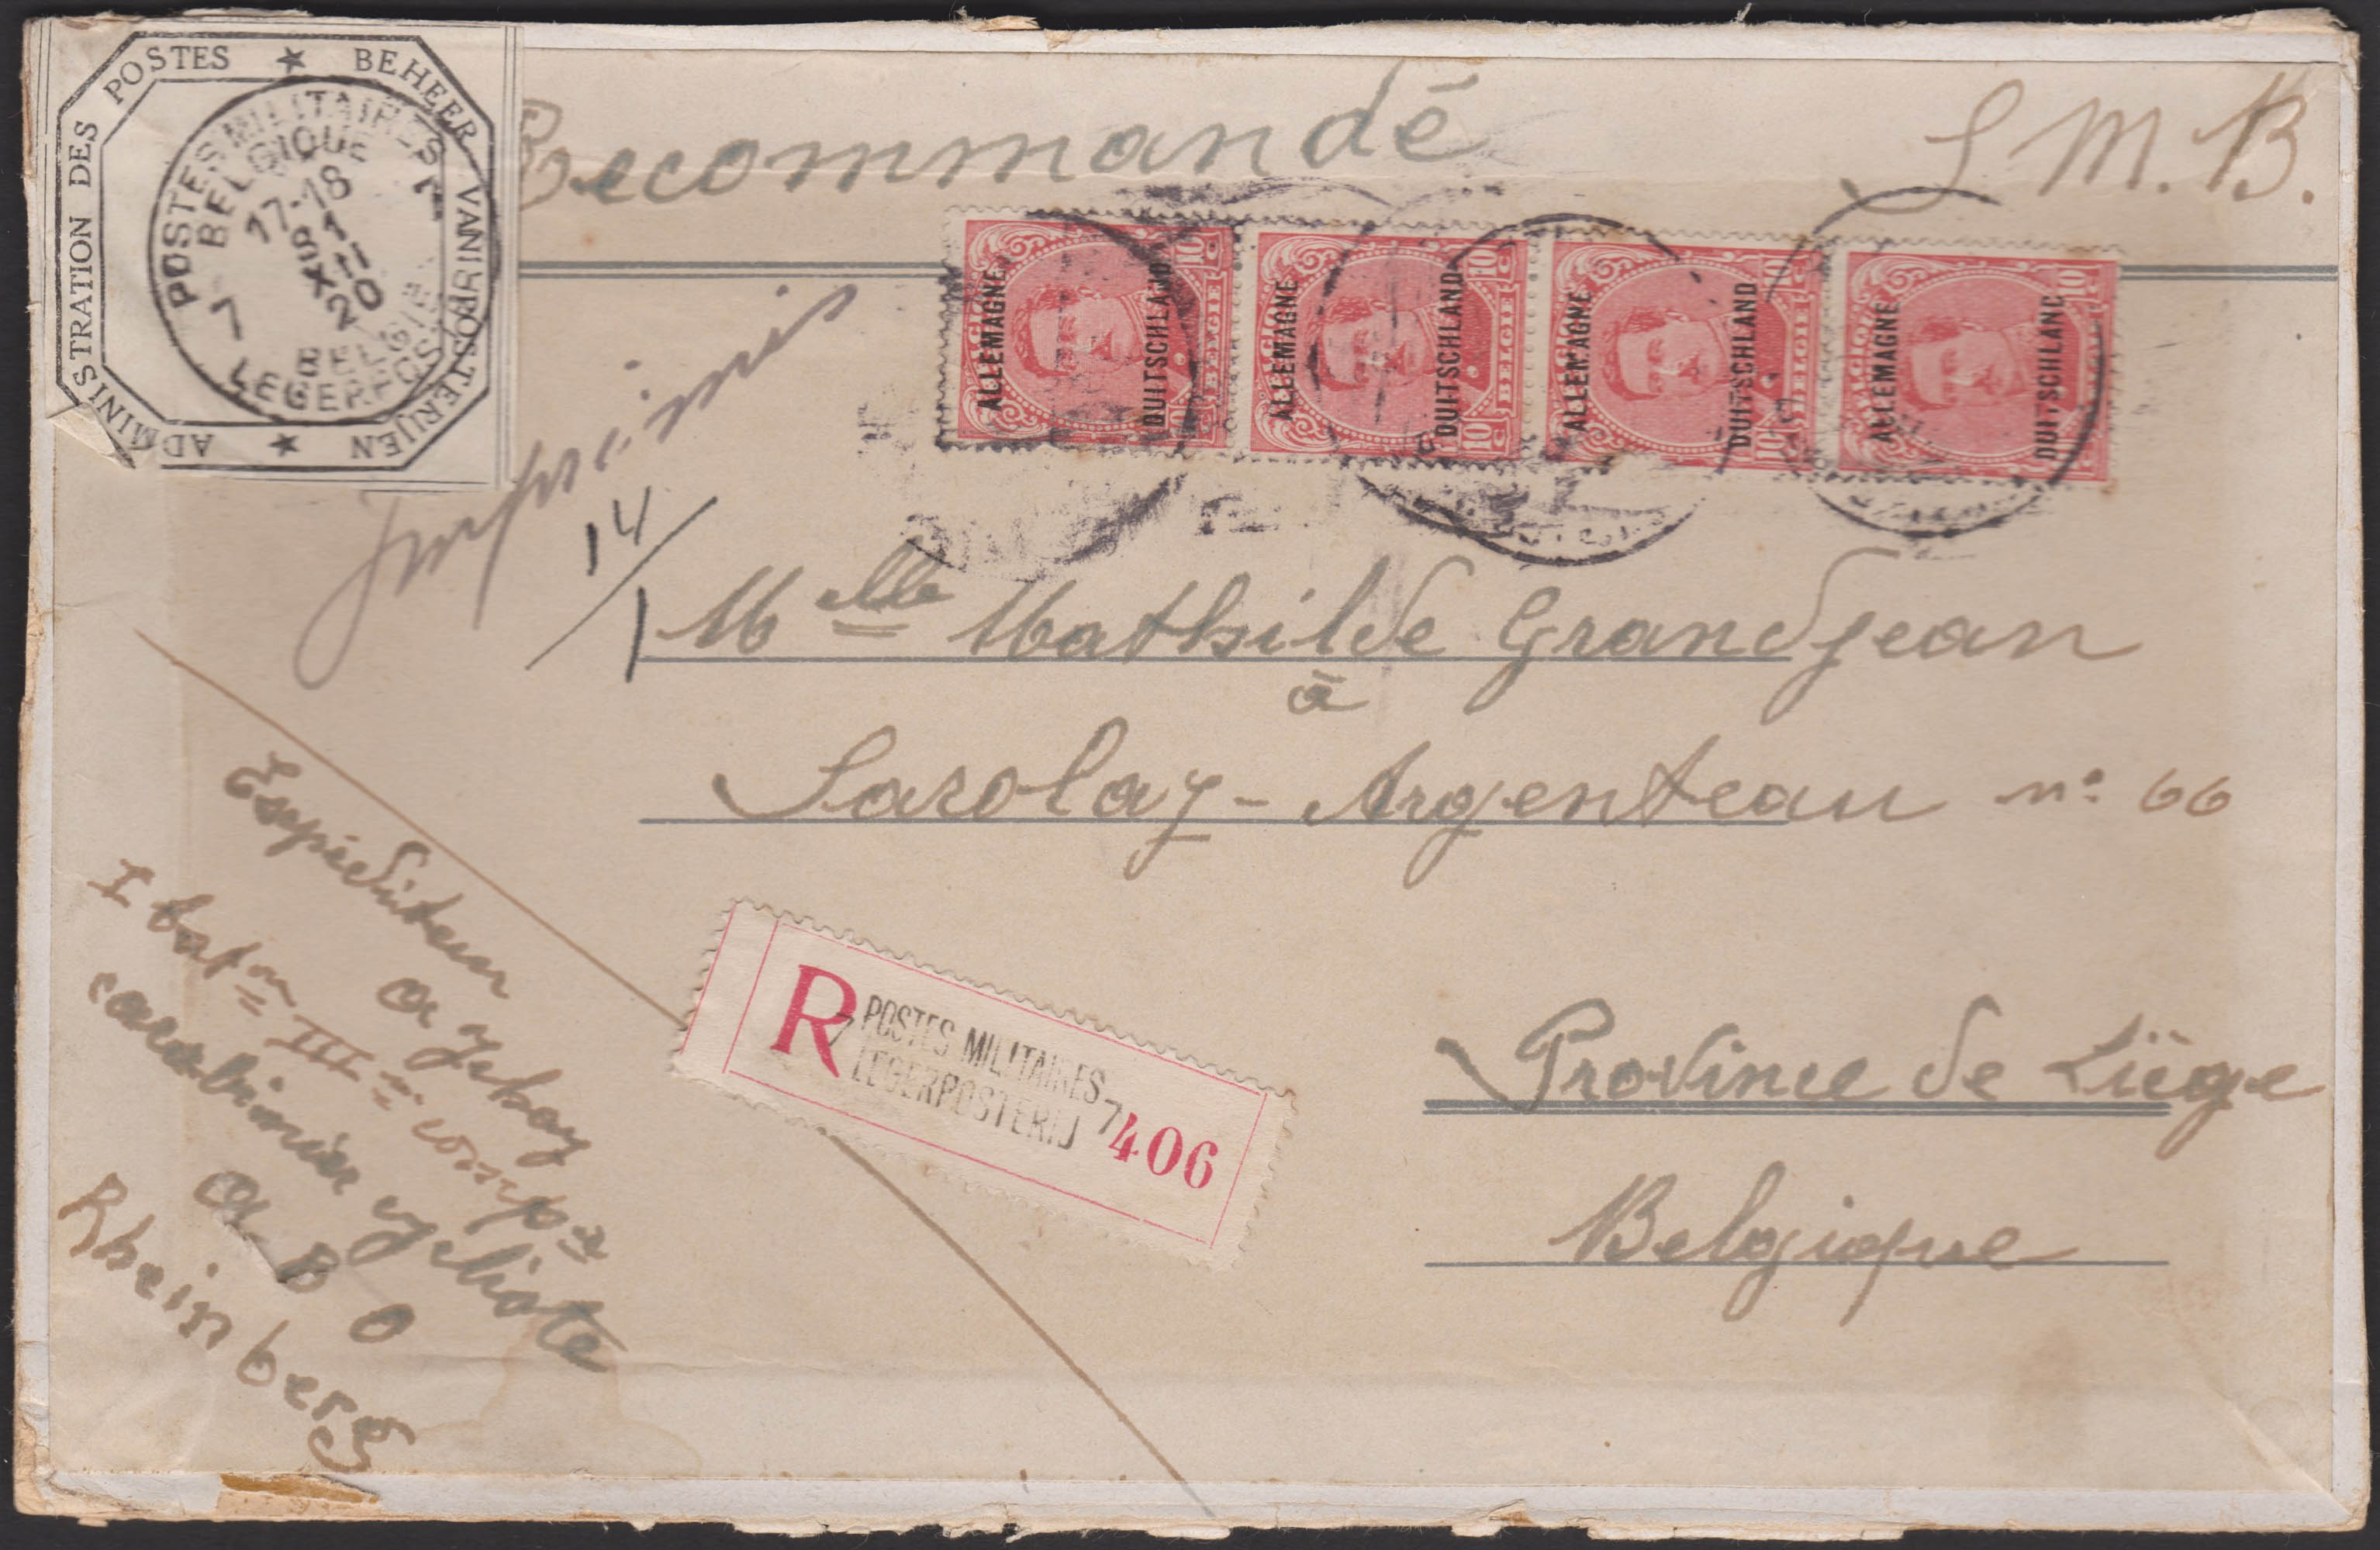 ADMINISTRATION DES POSTES ★ BEHEER VAN
POSTERIJEN ★
POSTES MILITAIRES
BELGIQUE
17-18
XII
20
7
7
BELGIE
LEGERPOS
Recommandé
S. M. B.
Imprimés
14/1
ALLEMAGNE DUITSCHLAND 10 C BELGIE
ALLEMAGNE DUITSCHLAND 10 C BELGIE
ALLEMAGNE DUITSCHLAND 10 C BELGIE
ALLEMAGNE DUITSCHLAND 10 C
Melle Mathilde Grandjean
à
Sarolay - Argenteau n° 66
Province de Liège
Belgique
R
7 POSTES MILITAIRES 7
LEGERPOSTERIJ
406
Expéditeur
I baton III compie
carabinier cycliste
A B O
Rheinberg